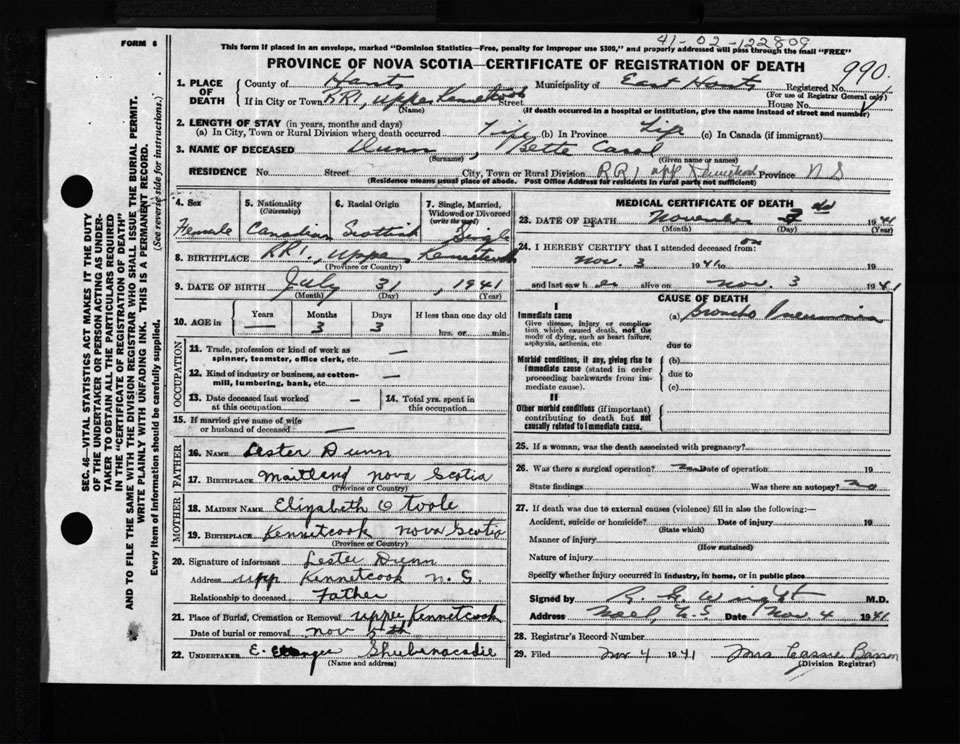 41-02-122809
FORM 6
This form if placed in an envelope, marked "Dominion Statistics—Free, penalty for improper use $300," and properly addressed will pass through the mail "FREE"
PROVINCE OF NOVA SCOTIA—CERTIFICATE OF REGISTRATION OF DEATH
990
1. PLACE OF DEATH
County of Hants Municipality of East Hants Registered No.
(For use of Registrar General only)
If in City or Town RR1, Upper Kennetcook Street House No.
(Name) (If death occurred in a hospital or institution, give the name instead of street and number)
2. LENGTH OF STAY (in years, months and days)
(a) In City, Town or Rural Division where death occurred Life (b) In Province Life (c) In Canada (if immigrant)
3. NAME OF DECEASED Dunn, Bette Carol
(Surname) (Given name or names)
RESIDENCE No. Street City, Town or Rural Division RR1 upp Kennetcook Province N S
(Residence means usual place of abode. Post Office Address for residents in rural parts not sufficient)
4. Sex Female
5. Nationality (Citizenship) Canadian
6. Racial Origin Scottish
7. Single, Married, Widowed or Divorced (write the word) Single
8. BIRTHPLACE RR1, Upper Kennetcook
(Province or Country)
9. DATE OF BIRTH July 31, 1941
(Month) (Day) (Year)
10. AGE in Years — Months 3 Days 3 If less than one day old hrs. or min.
OCCUPATION
11. Trade, profession or kind of work as spinner, teamster, office clerk, etc. —
12. Kind of industry or business, as cotton-mill, lumbering, bank, etc. —
13. Date deceased last worked at this occupation —
14. Total yrs. spent in this occupation
15. If married give name of wife or husband of deceased —
FATHER
16. NAME Lester Dunn
17. BIRTHPLACE Maitland Nova Scotia
(Province or Country)
MOTHER
18. MAIDEN NAME Elizabeth O Toole
19. BIRTHPLACE Kennetcook Nova Scotia
(Province or Country)
20. Signature of informant Lester Dunn
Address upp Kennetcook N. S.
Relationship to deceased Father
21. Place of Burial, Cremation or Removal upper Kennetcook
Date of burial or removal Nov 5th
22. UNDERTAKER E. Shubenacadie
(Name and address)
MEDICAL CERTIFICATE OF DEATH
23. DATE OF DEATH November 3rd 1941
(Month) (Day) (Year)
24. I HEREBY CERTIFY that I attended deceased from: on
Nov. 3 1941 to 19
and last saw h er alive on Nov. 3 1941
CAUSE OF DEATH
I
Immediate cause
Give disease, injury or complication which caused death, not the mode of dying, such as heart failure, asphyxia, asthenia, etc
(a) Broncho Pneumonia
due to
Morbid conditions, if any, giving rise to immediate cause (stated in order proceeding backwards from immediate cause).
(b)
due to
(c)
II
Other morbid conditions (if important) contributing to death but not causally related to immediate cause.
25. If a woman, was the death associated with pregnancy?
26. Was there a surgical operation? no Date of operation 19
State findings Was there an autopsy? no
27. If death was due to external causes (violence) fill in also the following:—
Accident, suicide or homicide? Date of injury 19
(State which)
Manner of injury
(How sustained)
Nature of injury
Specify whether injury occurred in industry, in home, or in public place
Signed by Wright M.D.
Address Noel, N.S Date Nov. 4 1941
28. Registrar's Record Number
29. Filed Nov 4 1941 Mrs Cassie
(Division Registrar)
SEC. 46—VITAL STATISTICS ACT MAKES IT THE DUTY
OF THE UNDERTAKER OR PERSON ACTING AS UNDER-
TAKER TO OBTAIN ALL THE PARTICULARS REQUIRED
IN THE "CERTIFICATE OF REGISTRATION OF DEATH"
AND TO FILE THE SAME WITH THE DIVISION REGISTRAR WHO SHALL ISSUE THE BURIAL PERMIT.
WRITE PLAINLY WITH UNFADING INK. THIS IS A PERMANENT RECORD.
Every item of information should be carefully supplied. (See reverse side for instructions.)